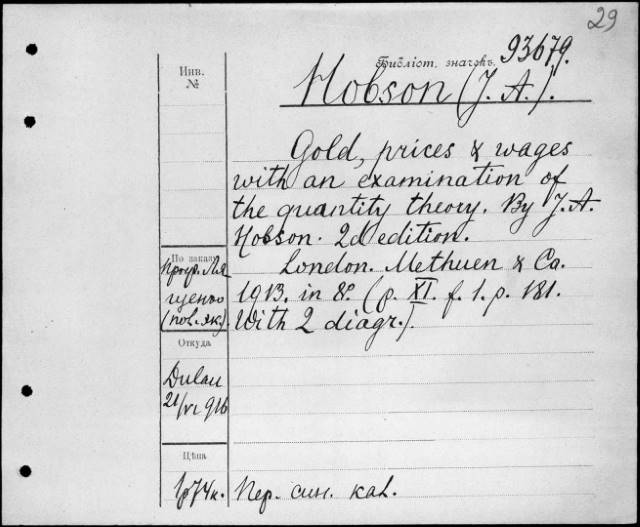 29
Библіот. значекъ. 93679.
Инв.
№
Hobson (J. A.).
Gold, prices & wages
with an examination of
the quantity theory. By J. A.
Hobson. 2d edition.
London. Methuen & Co.
1913. in 8º. (p. XI. f. 1. p. 181.
With 2 diagr.)
По заказу
проф. Ля
щенко
Откуда
Dulau
21/VI 916
Цѣна
1р74к.
Пер. син. кал.